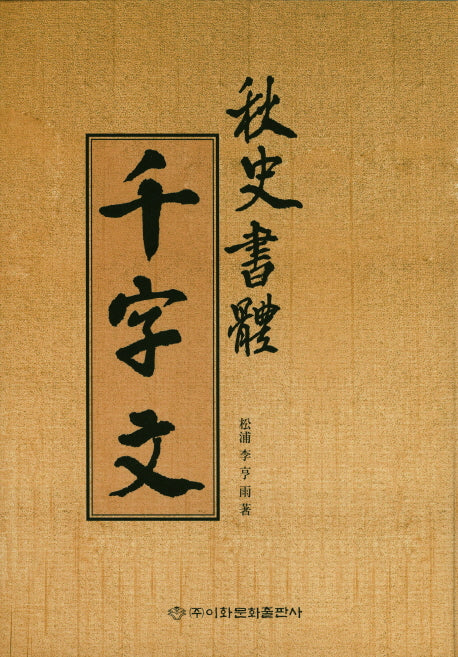 秋史書體
千字文
松浦 李亨雨 著
(주)이화문화출판사